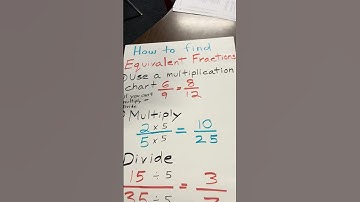 How to find
Equivalent Fractions
Use a multiplication
chart 6/9 = 8/12
if you can't
multiply or
divide
Multiply
2 × 5 / 5 × 5 = 10/25
Divide
15 ÷ 5 / 35 ÷ 5 = 3/7